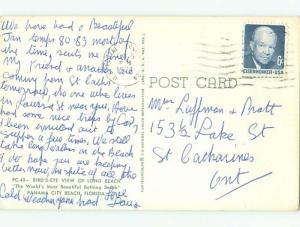 We have had a Beautiful
Jan temps 80-83 most of
the time, suits me fine.
My friend & another
coming from St Cath's
tomorrow, she one who lives
in Laura St near you. Have
had some nice trips by Car,
have been enrolled out to
supper a few times. We still
take long walks on the Beach
I do hope you are keeping
better Mary, in spite of all the
Cold Weather youve had Love
PC-43- BIRD'S-EYE VIEW OF LONG BEACH
"The World's Most Beautiful Bathing Beach"
PANAMA CITY BEACH, FLORIDA
POST CARD
EISENHOWER·USA
6c
Mrs Luffman & Pratt
153½ Lake St
St Catharines
Ont